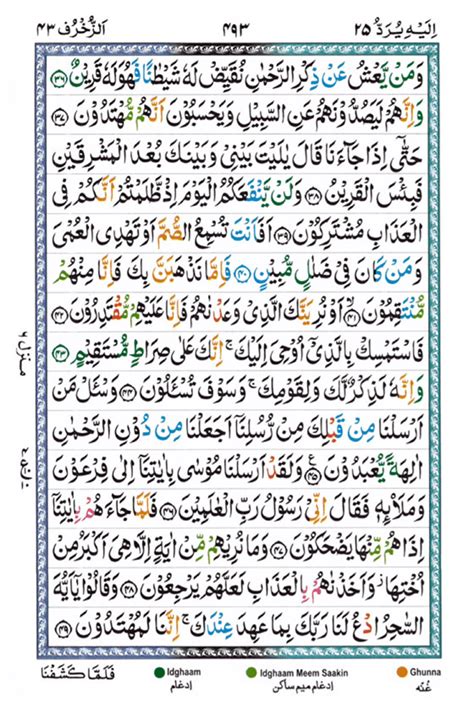 اِلَيْهِ يُرَدُّ ٢٥ ٤٩٣ اَلزُّخْرُف ٤٣
وَمَنْ يَّعْشُ عَنْ ذِكْرِ الرَّحْمٰنِ نُقَيِّضْ لَهٗ شَيْطٰنًا فَهُوَ لَهٗ قَرِيْنٌ ﴿٣٦﴾
وَاِنَّهُمْ لَيَصُدُّوْنَهُمْ عَنِ السَّبِيْلِ وَيَحْسَبُوْنَ اَنَّهُمْ مُّهْتَدُوْنَ ﴿٣٧﴾
حَتّٰٓى اِذَا جَآءَنَا قَالَ يٰلَيْتَ بَيْنِيْ وَبَيْنَكَ بُعْدَ الْمَشْرِقَيْنِ
فَبِئْسَ الْقَرِيْنُ ﴿٣٨﴾ وَلَنْ يَّنْفَعَكُمُ الْيَوْمَ اِذْ ظَّلَمْتُمْ اَنَّكُمْ فِى
الْعَذَابِ مُشْتَرِكُوْنَ ﴿٣٩﴾ اَفَاَنْتَ تُسْمِعُ الصُّمَّ اَوْ تَهْدِى الْعُمْىَ
وَمَنْ كَانَ فِيْ ضَلٰلٍ مُّبِيْنٍ ﴿٤٠﴾ فَاِمَّا نَذْهَبَنَّ بِكَ فَاِنَّا مِنْهُمْ
مُّنْتَقِمُوْنَ ﴿٤١﴾ اَوْ نُرِيَنَّكَ الَّذِيْ وَعَدْنٰهُمْ فَاِنَّا عَلَيْهِمْ مُّقْتَدِرُوْنَ ﴿٤٢﴾
فَاسْتَمْسِكْ بِالَّذِيْٓ اُوْحِىَ اِلَيْكَ ۚ اِنَّكَ عَلٰى صِرَاطٍ مُّسْتَقِيْمٍ ﴿٤٣﴾
وَاِنَّهٗ لَذِكْرٌ لَّكَ وَلِقَوْمِكَ ۚ وَسَوْفَ تُسْـَٔلُوْنَ ﴿٤٤﴾ وَسْـَٔلْ مَنْ
اَرْسَلْنَا مِنْ قَبْلِكَ مِنْ رُّسُلِنَآ اَجَعَلْنَا مِنْ دُوْنِ الرَّحْمٰنِ
اٰلِهَةً يُّعْبَدُوْنَ ﴿٤٥﴾ وَلَقَدْ اَرْسَلْنَا مُوْسٰى بِاٰيٰتِنَآ اِلٰى فِرْعَوْنَ
وَمَلَا۟ئِهٖ فَقَالَ اِنِّيْ رَسُوْلُ رَبِّ الْعٰلَمِيْنَ ﴿٤٦﴾ فَلَمَّا جَآءَهُمْ بِاٰيٰتِنَآ
اِذَا هُمْ مِّنْهَا يَضْحَكُوْنَ ﴿٤٧﴾ وَمَا نُرِيْهِمْ مِّنْ اٰيَةٍ اِلَّا هِىَ اَكْبَرُ مِنْ
اُخْتِهَا ؗ وَاَخَذْنٰهُمْ بِالْعَذَابِ لَعَلَّهُمْ يَرْجِعُوْنَ ﴿٤٨﴾ وَقَالُوْا يٰٓاَيُّهَ
السّٰحِرُ ادْعُ لَنَا رَبَّكَ بِمَا عَهِدَ عِنْدَكَ ۚ اِنَّنَا لَمُهْتَدُوْنَ ﴿٤٩﴾
منزل ٦
فَلَمَّا كَشَفْنَا
Idghaam
اِدغام
Idghaam Meem Saakin
اِدغام میم ساکن
Ghunna
غُنّه